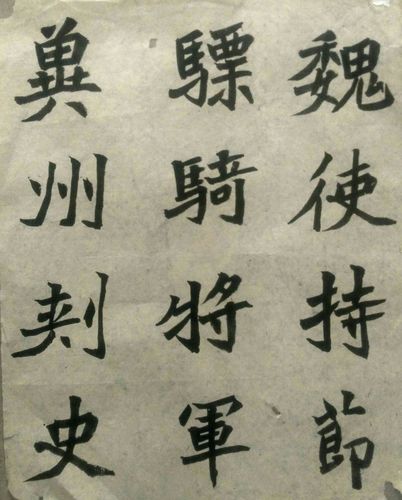 魏使持節
驃騎將軍
冀州刺史